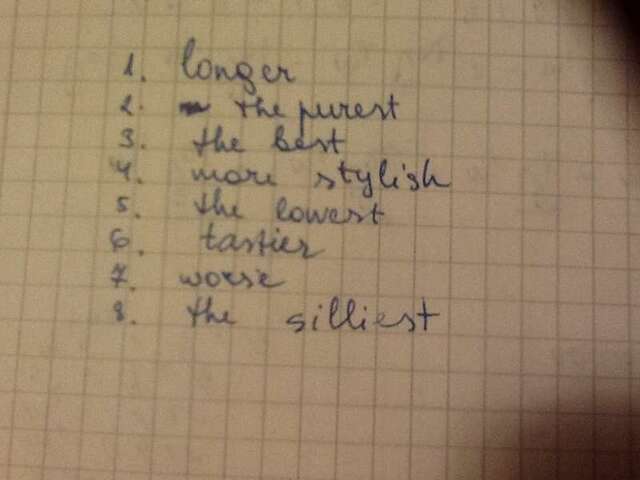 1. longer
2. the purest
3. the best
4. more stylish
5. the lowest
6. tastier
7. worse
8. the silliest